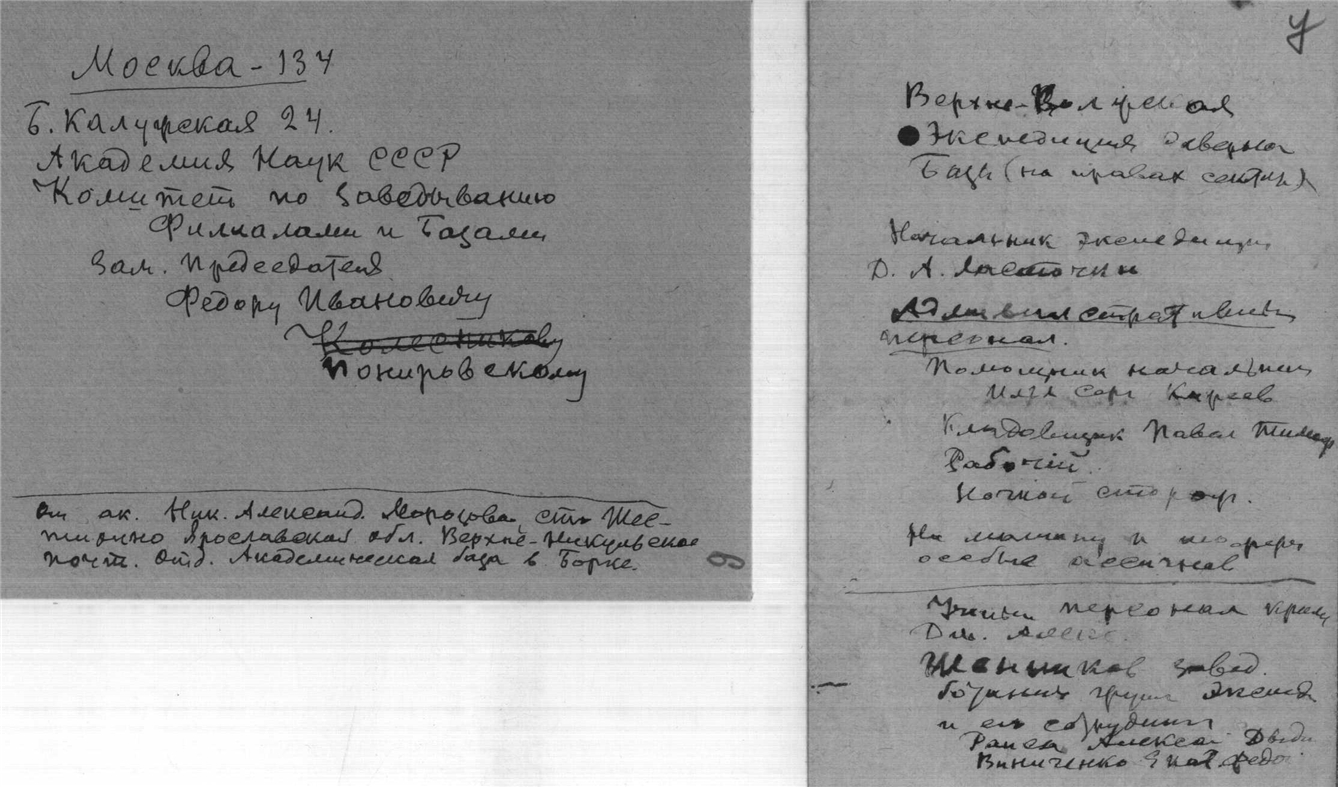 Москва - 134
Б. Калужская 24.
Академия Наук СССР
Комитет по Заведыванию
Филиалами и Базами
Зам. Председателя
Федору Ивановичу
Колесникову
Понировскому
от ак. Ник. Александ. Морозова, ст. Шес-
тихино Ярославская обл. Верхне-Никульское
почт. отд. Академическая база в Борке.
6
У
Верхне-Волжская
Экспедиция Северна
Базы (на правах секции)
Начальник Экспедиции
Д. А. Ласточкин
Административный
персонал.
Помощник начальника
Илья Серг Киреев
Кладовщик Павел Тимоф
Рабочий.
Ночной сторож.
На машину и шофера
особые ассигнов
персонал кроме
Дм. Алекс.
Шенников завед.
ботанич групп Экспед
и его сотрудники
Алексей Давид
Виниченко Екат Федо